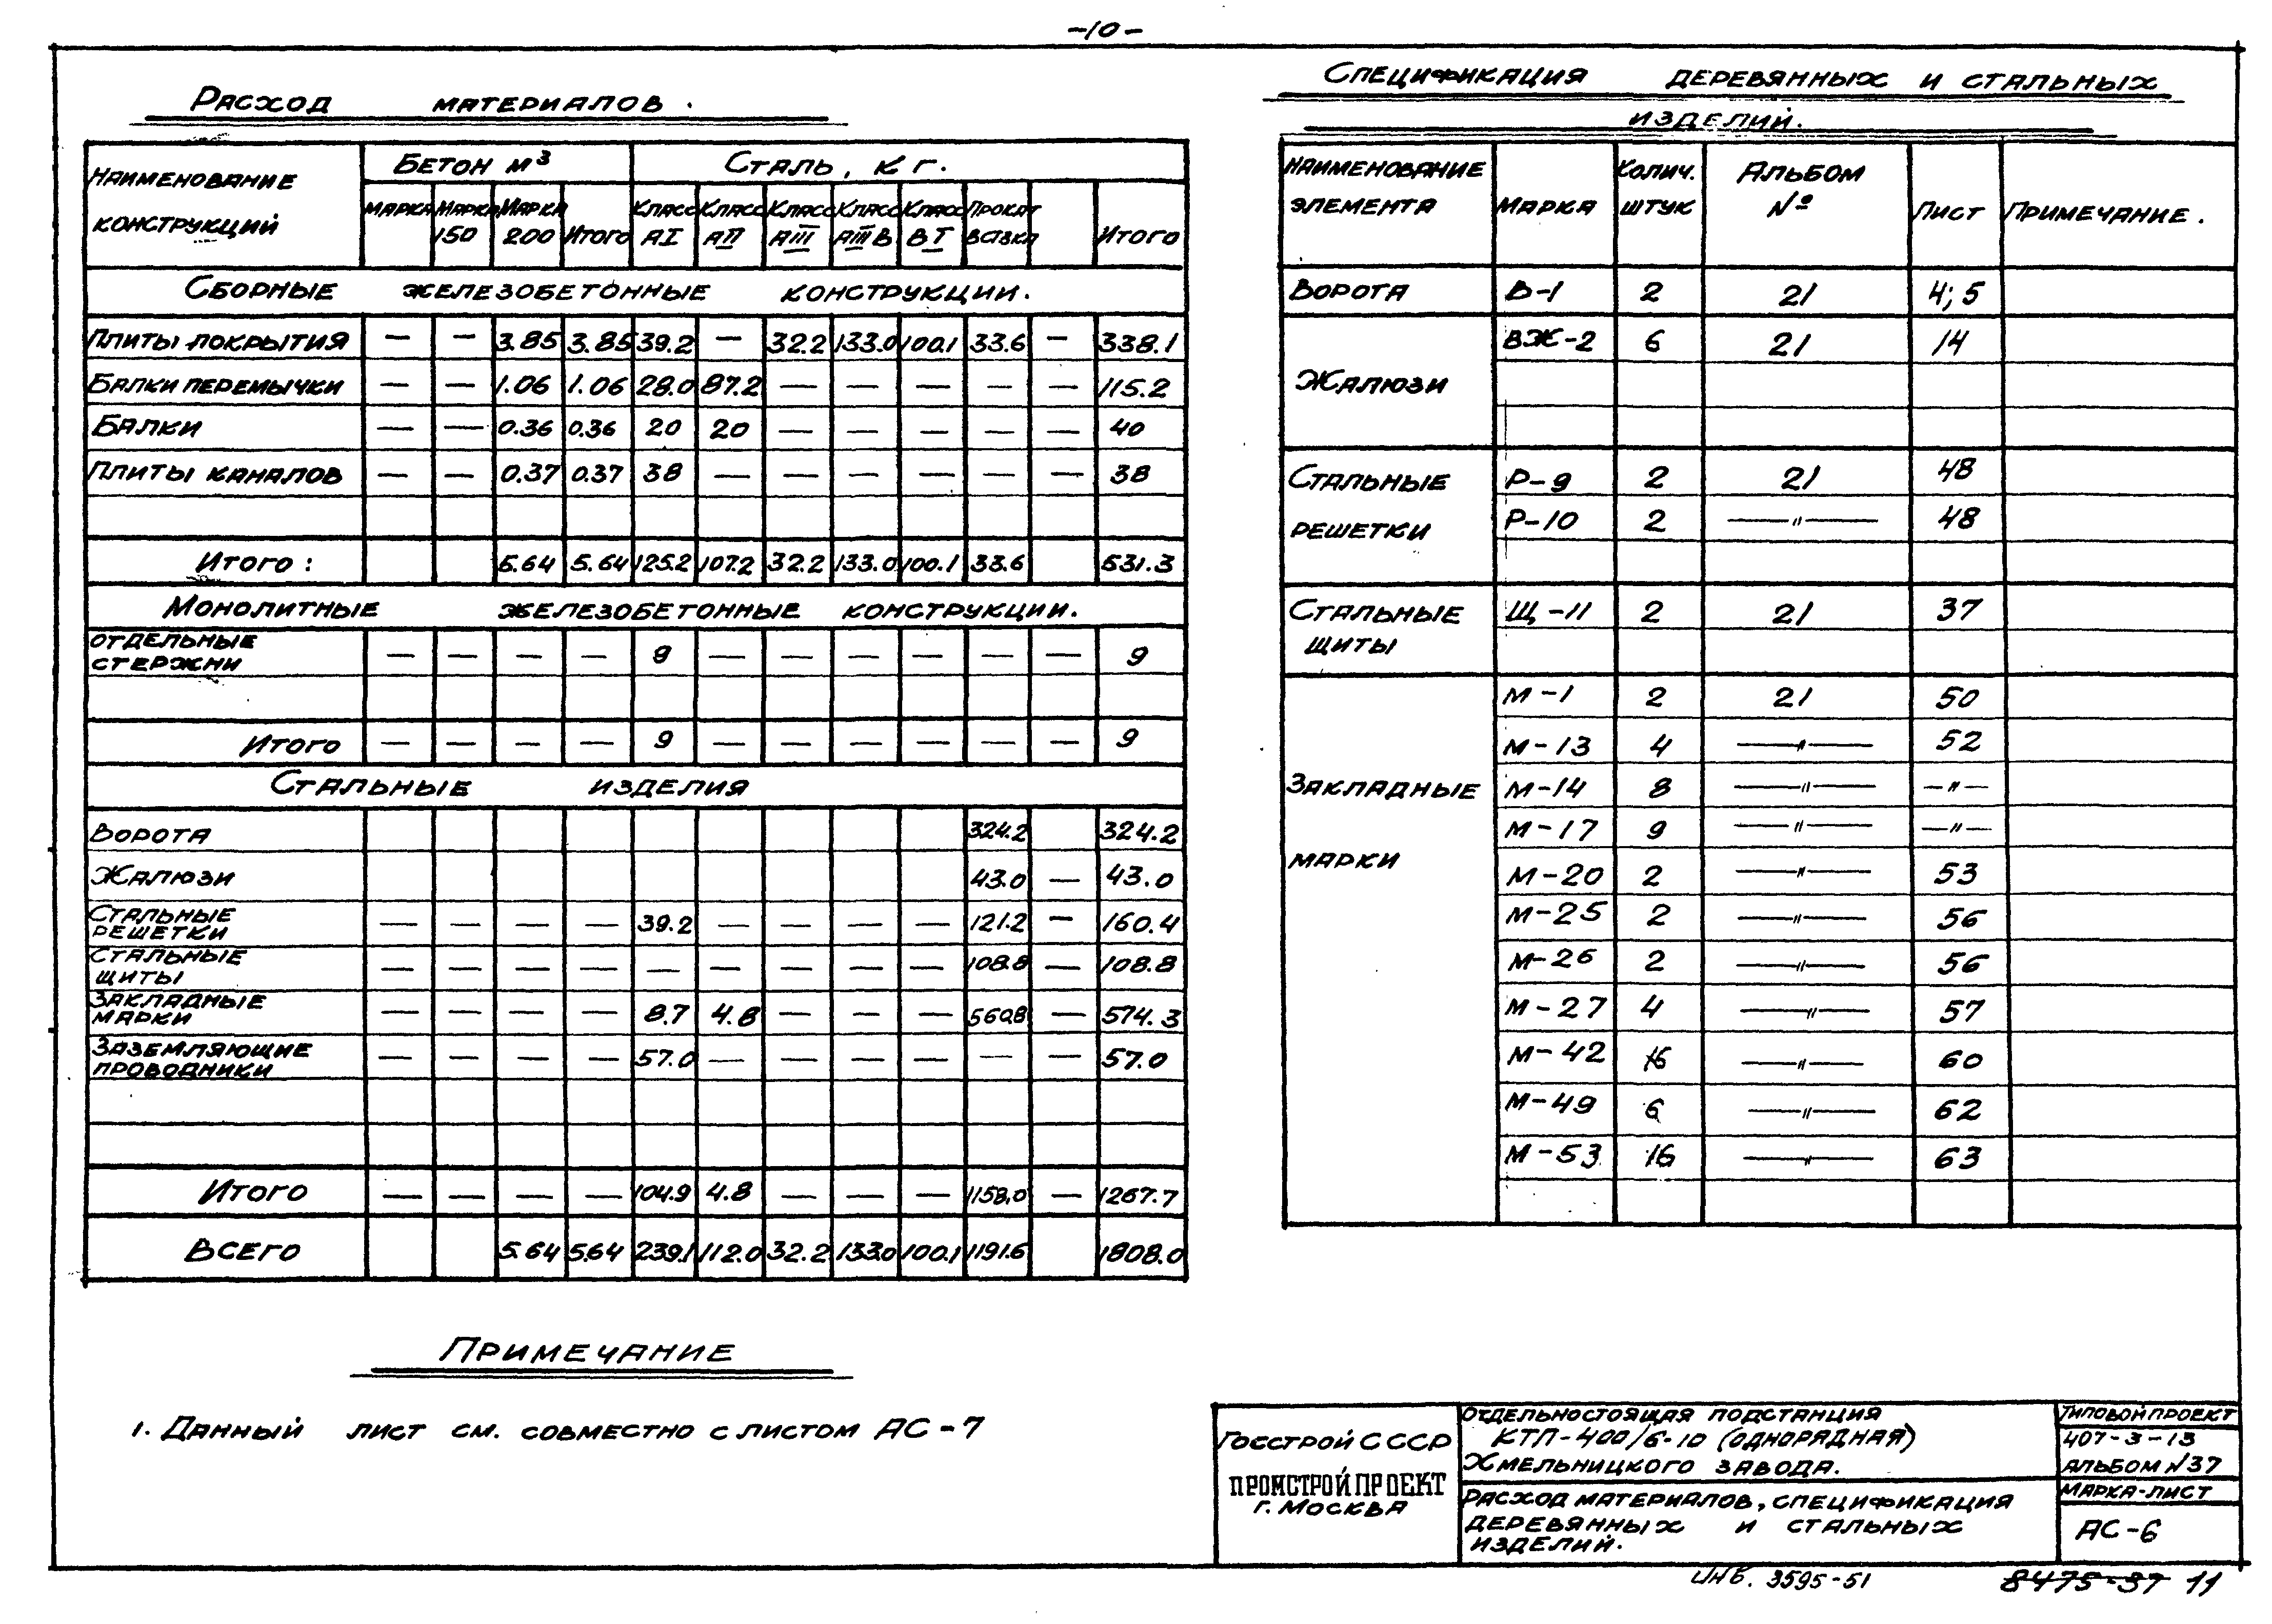 -10-
Расход материалов.
Наименование конструкций | Бетон м³ | Сталь, кг.
Марка | Марка 150 | Марка 200 | Итого | Класс АI | Класс АII | Класс АIII | Класс АIIIВ | Класс ВI | Прокат ВстЗкп | Итого
Сборные железобетонные конструкции.
Плиты покрытия — — 3.85 3.85 39.2 — 32.2 133.0 100.1 33.6 — 338.1
Балки перемычки — — 1.06 1.06 28.0 87.2 — — — — — 115.2
Балки — — 0.36 0.36 20 20 — — — — — 40
Плиты каналов — — 0.37 0.37 38 — — — — — — 38
Итого: 5.64 5.64 125.2 107.2 32.2 133.0 100.1 33.6 531.3
Монолитные железобетонные конструкции.
Отдельные стержни — — — — 9 — — — — — — 9
Итого — — — — 9 — — — — — — 9
Стальные изделия
Ворота 324.2 324.2
Жалюзи 43.0 — 43.0
Стальные решетки — — — — 39.2 — — — — 121.2 — 160.4
Стальные щиты — — — — — — — — — 108.8 — 108.8
Закладные марки — — — — 8.7 4.8 — — — 560.8 — 574.3
Заземляющие проводники — — — — 57.0 — — — — — — 57.0
Итого — — — — 104.9 4.8 — — — 1158.0 — 1267.7
Всего 5.64 5.64 239.1 112.0 32.2 133.0 100.1 1191.6 1808.0
Примечание
1. Данный лист см. совместно с листом АС-7
Спецификация деревянных и стальных
изделий.
Наименование элемента | Марка | Колич. штук | Альбом № | Лист | Примечание.
Ворота В-1 2 21 4; 5
Жалюзи ВЖ-2 6 21 14
Стальные решетки Р-9 2 21 48
Р-10 2 —"— 48
Стальные щиты Щ-11 2 21 37
Закладные марки М-1 2 21 50
М-13 4 —"— 52
М-14 8 —"— —"—
М-17 9 —"— —"—
М-20 2 —"— 53
М-25 2 —"— 56
М-26 2 —"— 56
М-27 4 —"— 57
М-42 16 —"— 60
М-49 6 —"— 62
М-53 16 —"— 63
Госстрой СССР
ПРОМСТРОЙПРОЕКТ
г. Москва
Отдельностоящая подстанция
КТП-400/6-10 (однорядная)
Хмельницкого завода.
Расход материалов, спецификация
деревянных и стальных
изделий.
Типовой проект
407-3-13
Альбом №37
Марка-лист
АС-6
Инв. 3595-51
8475-37 11